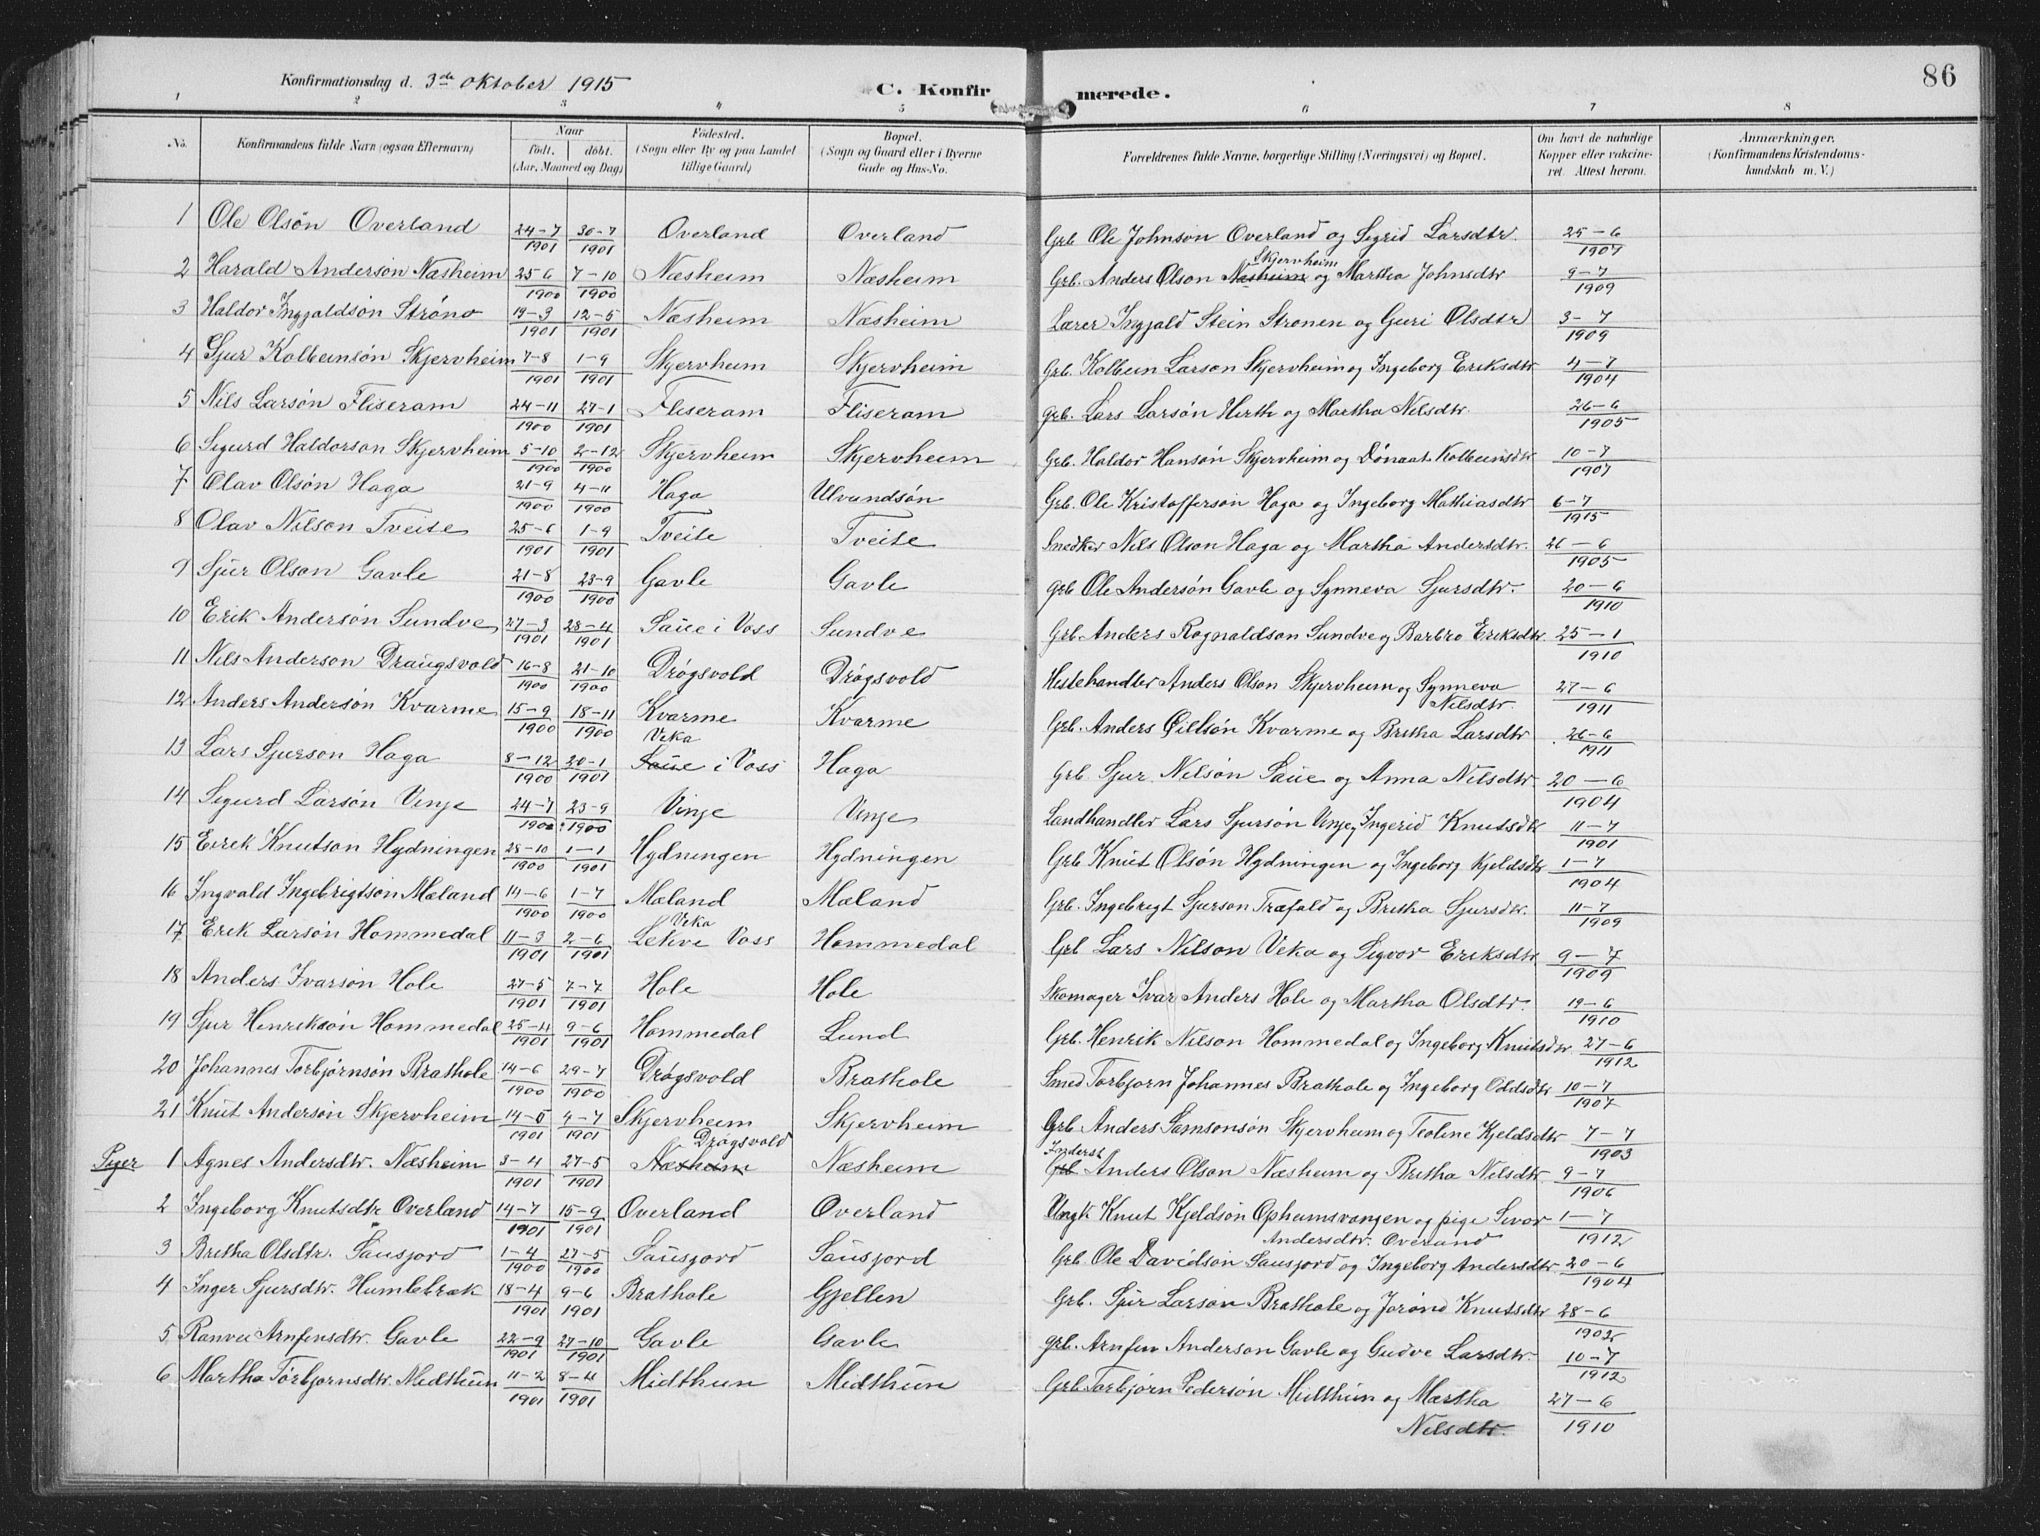 Konfirmationsdag d. 3de Oktober 1915
C. Konfirmerede.
86
1 2 3 4 5 6 7 8
No. Konfirmandens fulde Navn (ogsaa Efternavn) Naar født. døbt. (Aar, Maaned og Dag) Fødested. (Sogn eller By og paa Landet tillige Gaard) Bopæl. (Sogn og Gaard eller i Byerne Gade og Hus-No. Forældrenes fulde Navne, borgerlige Stilling (Næringsvei) og Bopæl. Om havt de naturlige Kopper eller vakcineret. Attest herom. Anmærkninger. (Konfirmandens Kristendomskundskab m. V.)
1 Ole Olsön Overland 24-7 1901 30-7 1901 Overland Overland Grb Ole Johnson Overland og Sigrid Larsdtr. 25-6 1907
2 Harald Anderson Næsheim 25 6 1900 7-10 1900 Næsheim Næsheim Grb. Anders Olson Næsheim Skjervheim og Martha Johnsdtr 9-7 1909
3 Haldor Ingjaldsön Strönd 19-3 1901 12-5 1901 Næsheim Næsheim Lærer Ingjald Stein Stronen og Guri Olsdtr 3-7 1909
4 Sjur Kolbeinsön Skjervheim 7-8 1901 1-9 1901 Skjervheim Skjervheim Grb. Kolbein Larson Skjervheim og Ingeborg Eriksdtr 4-7 1904
5 Nils Larsön Fliseram 24-11 1900 27-1 1901 Fliseram Fliseram Grb. Lars Larsön Herth og Martha Nilsdtr. 26-6 1905
6 Sigurd Haldorson Skjervheim 5-10 1900 2-12 1900 Skjervheim Skjervheim Grb. Haldor Hansön Skjervheim og Dönaat Kolbeinsdtr 10-7 1907
7 Olav Olsön Haga 21-9 1900 4-11 1900 Haga Ulvundsön Grb. Ole Kristofferson Haga og Ingeborg Mathiasdtr 6-7 1915
8 Olav Nilson Tveite 25-6 1901 1-9 1901 Tveite Tveite Snedker Nils Olson Haga og Martha Andersdtr. 26-6 1905
9 Sjur Olson Gavle 21-8 1900 23-9 1900 Gavle Gavle Grb Ole Andersön Gavle og Synneva Sjursdtr. 20-6 1910
10 Erik Andersön Sundve 27-3 1901 28-4 1901 Saue i Voss Sundve Grb. Anders Rognaldson Sundve og Barbro Eriksdtr. 25-1 1910
11 Nils Anderson Draugsvold 16-8 1900 21-10 1900 Drøgsvold Drøgsvold Hestehandler Anders Olson Skjervheim og Synneva Nilsdtr. 27-6 1911
12 Anders Andersön Kvarme 15-9 1900 18-11 1900 Kvarme Kvarme Grb. Anders Gillsön Kvarme og Britha Larsdtr 26-6 1911
13 Lars Sjurson Haga 8-12 1900 20-1 1901 Saue Veka i Voss Haga Grb. Sjur Nilsön Saue og Anna Nilsdtr. 20-6 1904
14 Sigurd Larsön Vinje 24-7 1900 23-9 1900 Vinje Vinje Landhandler Lars Sjursön Vinje, Ingerid Knutsdtr 11-7 1901
15 Eirik Knutson Hydningen 28-10 1900 1-1 1901 Hydningen Hydningen Grb Knut Olsön Hydningen og Ingeborg Kjeldsdtr 1-7 1904
16 Ingvald Ingebrigtsön Mæland 14-6 1900 1-7 1900 Mæland Mæland Grb. Ingebrigt Sjurson Træfald og Britha Sjursdtr. 11-7 1909
17 Erik Larsön Hommedal 11-3 1901 2-6 1901 Lekve Veka Voss Hommedal Grb Lars Nilson Veka og Sigvor Eriksdtr 9-7 1909
18 Anders Ivarsön Hole 27-5 1901 7-7 1901 Hole Hole Skomager Ivar Anders Hole og Martha Olsdtr. 19-6 1910
19 Sjur Henriksön Hommedal 25-4 1901 9-6 1901 Hommedal Lund Grb. Henrik Nilson Hommedal og Ingeborg Knutsdtr 27-6 1912
20 Johannes Torbjörnsön Brathole 14-6 1900 29-7 1900 Drøgsvold Brathole Smed Torbjorn Johannes Brathole og Ingeborg Oddsdtr 10-7 1907
21 Knut Andersön Skjervheim 14-5 1901 4-7 1901 Skjervheim Skjervheim Grb Anders Samsonsön Skjervheim og Teoline Kjeldsdtr 7-7 1903
Piger 1 Agnes Andersdtr. Næsheim 3-4 1901 27-5 1901 Næsheim Drøgsvold Næsheim Grb Inderst Anders Olson Næsheim og Britha Nilsdtr. 9-7 1906
2 Ingeborg Knutsdtr Overland 14-7 1901 15-9 1901 Overland Overland Ungk Knut Kjeldsön Opheimsvangen og pige Sivor Andersdtr. Overland 1-7 1912
3 Britha Olsdtr. Sausjord 1-4 1900 27-5 1900 Sausjord Sausjord Grb. Ole Davidson Sausjord og Ingeborg Andersdtr. 20-6 1904
4 Inger Sjursdtr. Humlebræk 18-4 1901 9-6 1901 Brathole Gjellen Grb. Sjur Larson Brathole og Jorönd Knutsdtr 28-6 1902
5 Ranvei Arnfinsdtr. Gavle 22-9 1901 27-10 1901 Gavle Gavle Grb. Arnfinn Anderson Gavle og Gudve Larsdtr. 10-7 1912
6 Martha Törbjornsdtr. Midthun 11-2 1901 8-4 1901 Midthun Midthun Grb Torbjörn Pedersön Midthun og Martha Nilsdtr. 27-6 1910